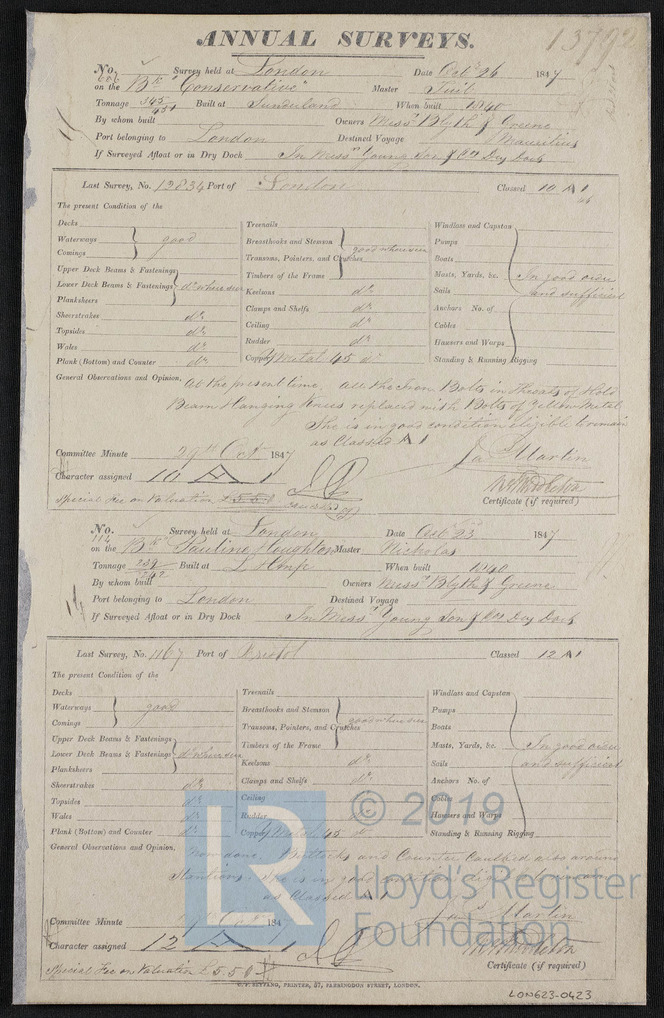 ANNUAL SURVEYS.
13792
No. 606 Survey held at London Date Octr 26 1847
on the Bk "Conservative" Master Tuit
Tonnage 545 451 Built at Sunderland When built 1840
By whom built Owners Messrs Blyth & Greene
Port belonging to London Destined Voyage Mauritius
If Surveyed Afloat or in Dry Dock In Messrs Young Son & Cos Dry Dock
Last Survey, No. 12834 Port of London Classed 10 A 1
The present Condition of the
Decks
Waterways good
Comings
Upper Deck Beams & Fastenings
Lower Deck Beams & Fastenings do where seen
Planksheers
Sheerstrakes do
Topsides do
Wales do
Plank (Bottom) and Counter do
Treenails
Breasthooks and Stemson good where seen
Transoms, Pointers, and Crutches
Timbers of the Frame
Keelsons do
Clamps and Shelfs do
Ceiling do
Rudder do
Copper Y Metal 45 d
Windlass and Capstan
Pumps
Boats
Masts, Yards, &c. In good order
Sails and sufficient
Anchors No. of
Cables
Hawsers and Warps
Standing & Running Rigging
General Observations and Opinion, At the present time, all the Iron Bolts in Throats of Hold
Beam Hanging Knees replaced with Bolts of Yellow Metal
She is in good condition eligible to remain
as Classed A 1
Committee Minute 29th Oct 1847 Jas Martin
Character assigned 10 A 1
Special Fee on Valuation £5.5.0 Certificate (if required)
No. 114 Survey held at London Date Oct 23 1847
on the Bk "Pauline Houghton" Master Nicholas
Tonnage 239 242 Built at When built 1840
By whom built Owners Messrs Blyth & Greene
Port belonging to London Destined Voyage
If Surveyed Afloat or in Dry Dock In Messrs Young Son & Cos Dry Dock
Last Survey, No. 1167 Port of Bristol Classed 12 A 1
The present Condition of the
Decks
Waterways good
Comings
Upper Deck Beams & Fastenings
Lower Deck Beams & Fastenings do where seen
Planksheers
Sheerstrakes do
Topsides do
Wales do
Plank (Bottom) and Counter do
Treenails
Breasthooks and Stemson good where seen
Transoms, Pointers, and Crutches
Timbers of the Frame
Keelsons do
Clamps and Shelfs do
Ceiling
Rudder do
Copper Y Metal 45 d
Windlass and Capstan
Pumps
Boats
Masts, Yards, &c. In good order
Sails and sufficient
Anchors No. of
Cables
Hawsers and Warps
Standing & Running Rigging
General Observations and Opinion, Now done, Buttocks and Counter Caulked also around
Stantions. She is in good condition eligible to remain
as Classed A 1
Committee Minute Oct 184 Jas Martin
Character assigned 12 A 1
Special Fee on Valuation £5.5.0 Certificate (if required)
C. F. SEYFANG, PRINTER, 57, FARRINGDON STREET, LONDON.
LON623-0423
LR © 2019
Lloyd's Register
Foundation